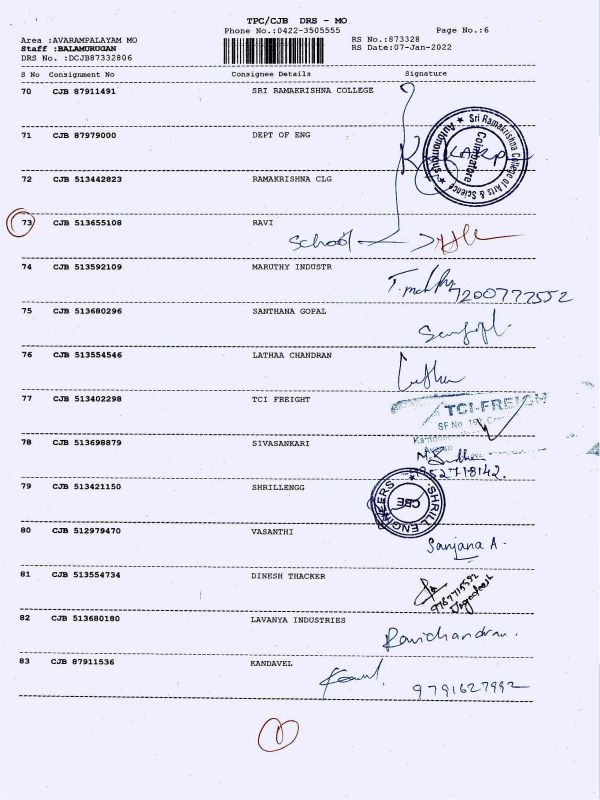 TPC/CJB DRS - MO
Phone No.:0422-3505555
Page No.:6
Area :AVARAMPALAYAM MO
RS No.:873328
Staff :BALAMURUGAN
RS Date:07-Jan-2022
DRS No. :DCJB87332806
S No Consignment No Consignee Details Signature
70 CJB 87911491 SRI RAMAKRISHNA COLLEGE
71 CJB 87979000 DEPT OF ENG
Sri Ramakrishna College of Arts & Science
Autonomous
Coimbatore
72 CJB 513442823 RAMAKRISHNA CLG
73 CJB 513655108 RAVI
School
74 CJB 513592109 MARUTHY INDUSTR
7200777552
75 CJB 513680296 SANTHANA GOPAL
76 CJB 513554546 LATHAA CHANDRAN
77 CJB 513402298 TCI FREIGHT
TCI-FREIGH
SF No
78 CJB 513698879 SIVASANKARI
9952718142.
79 CJB 513421150 SHRILLENGG
SHRILL ENGINEERS
CBE
80 CJB 512979470 VASANTHI
Sanjana A -
81 CJB 513554734 DINESH THACKER
Jagadeesh
82 CJB 513680180 LAVANYA INDUSTRIES
Ravichandran.
83 CJB 87911536 KANDAVEL
9791627992
1